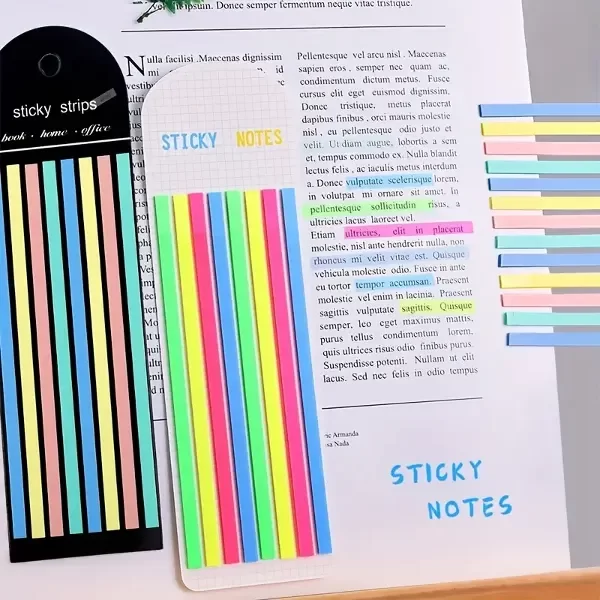 ipsum, Donec semper fermentum neque vitae tristique.
sticky strips
book · home · office
STICKY NOTES
Nulla facilisi .Maecenas dignissim
mi
id
Pellentesque vel arcu nisl . Maecenas
sapien eros , semper nec quam ac,
condimentum dictum metus. Fusce
cursus elit eget euismod dignissim.
Donec tristique, metus placerat
dapibus finibus , orci mauris molestie
nisl , eu pellentesque odio justo et
velit. Ut diam augue, lobortis a sem
et, tempus commodo ex. Nulla blandit
lectus felis , ac iaculis metus interdum
a. Donec vulputate scelerisque lorem,
in volutpat mi ornare sit amet. In
pellentesque sollicitudin risus, a
ultricies lacus laoreet vel.
Etiam ultricies, elit in placerat
molestie, nisl ante hendrerit nulla, non
rhoncus mi velit vitae est. Quisque
vehicula molestie odio. Fusce in ante
eu tortor tempor accumsan. Praesent
molestie vel enim in lacinia. Praesent
sagittis vulputate sagittis. Quisque
semper, leo eget maximus mattis,
purus tellus condimentum lorem,
quis ultrices risus odio finibus purus.
Suspendisse potenti. Nullam ut elit
lacus. Sed nec felis in odio tempus
Armanda
Nada
STICKY
NOTES